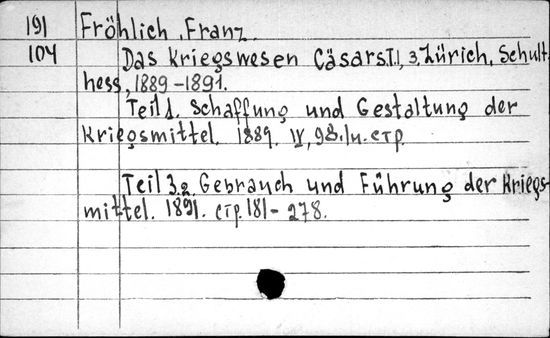 191 Fröhlich, Franz.
104 Das Kriegswesen Cäsars. T.1, 3. Zürich, Schult-
hess, 1889-1891.
Teil 1. Schaffung und Gestaltung der
Kriegsmittel. 1889. IV, 98. стр.
Teil 3. Gebrauch und Führung der Kriegs-
mittel. 1891. стр. 181-278.